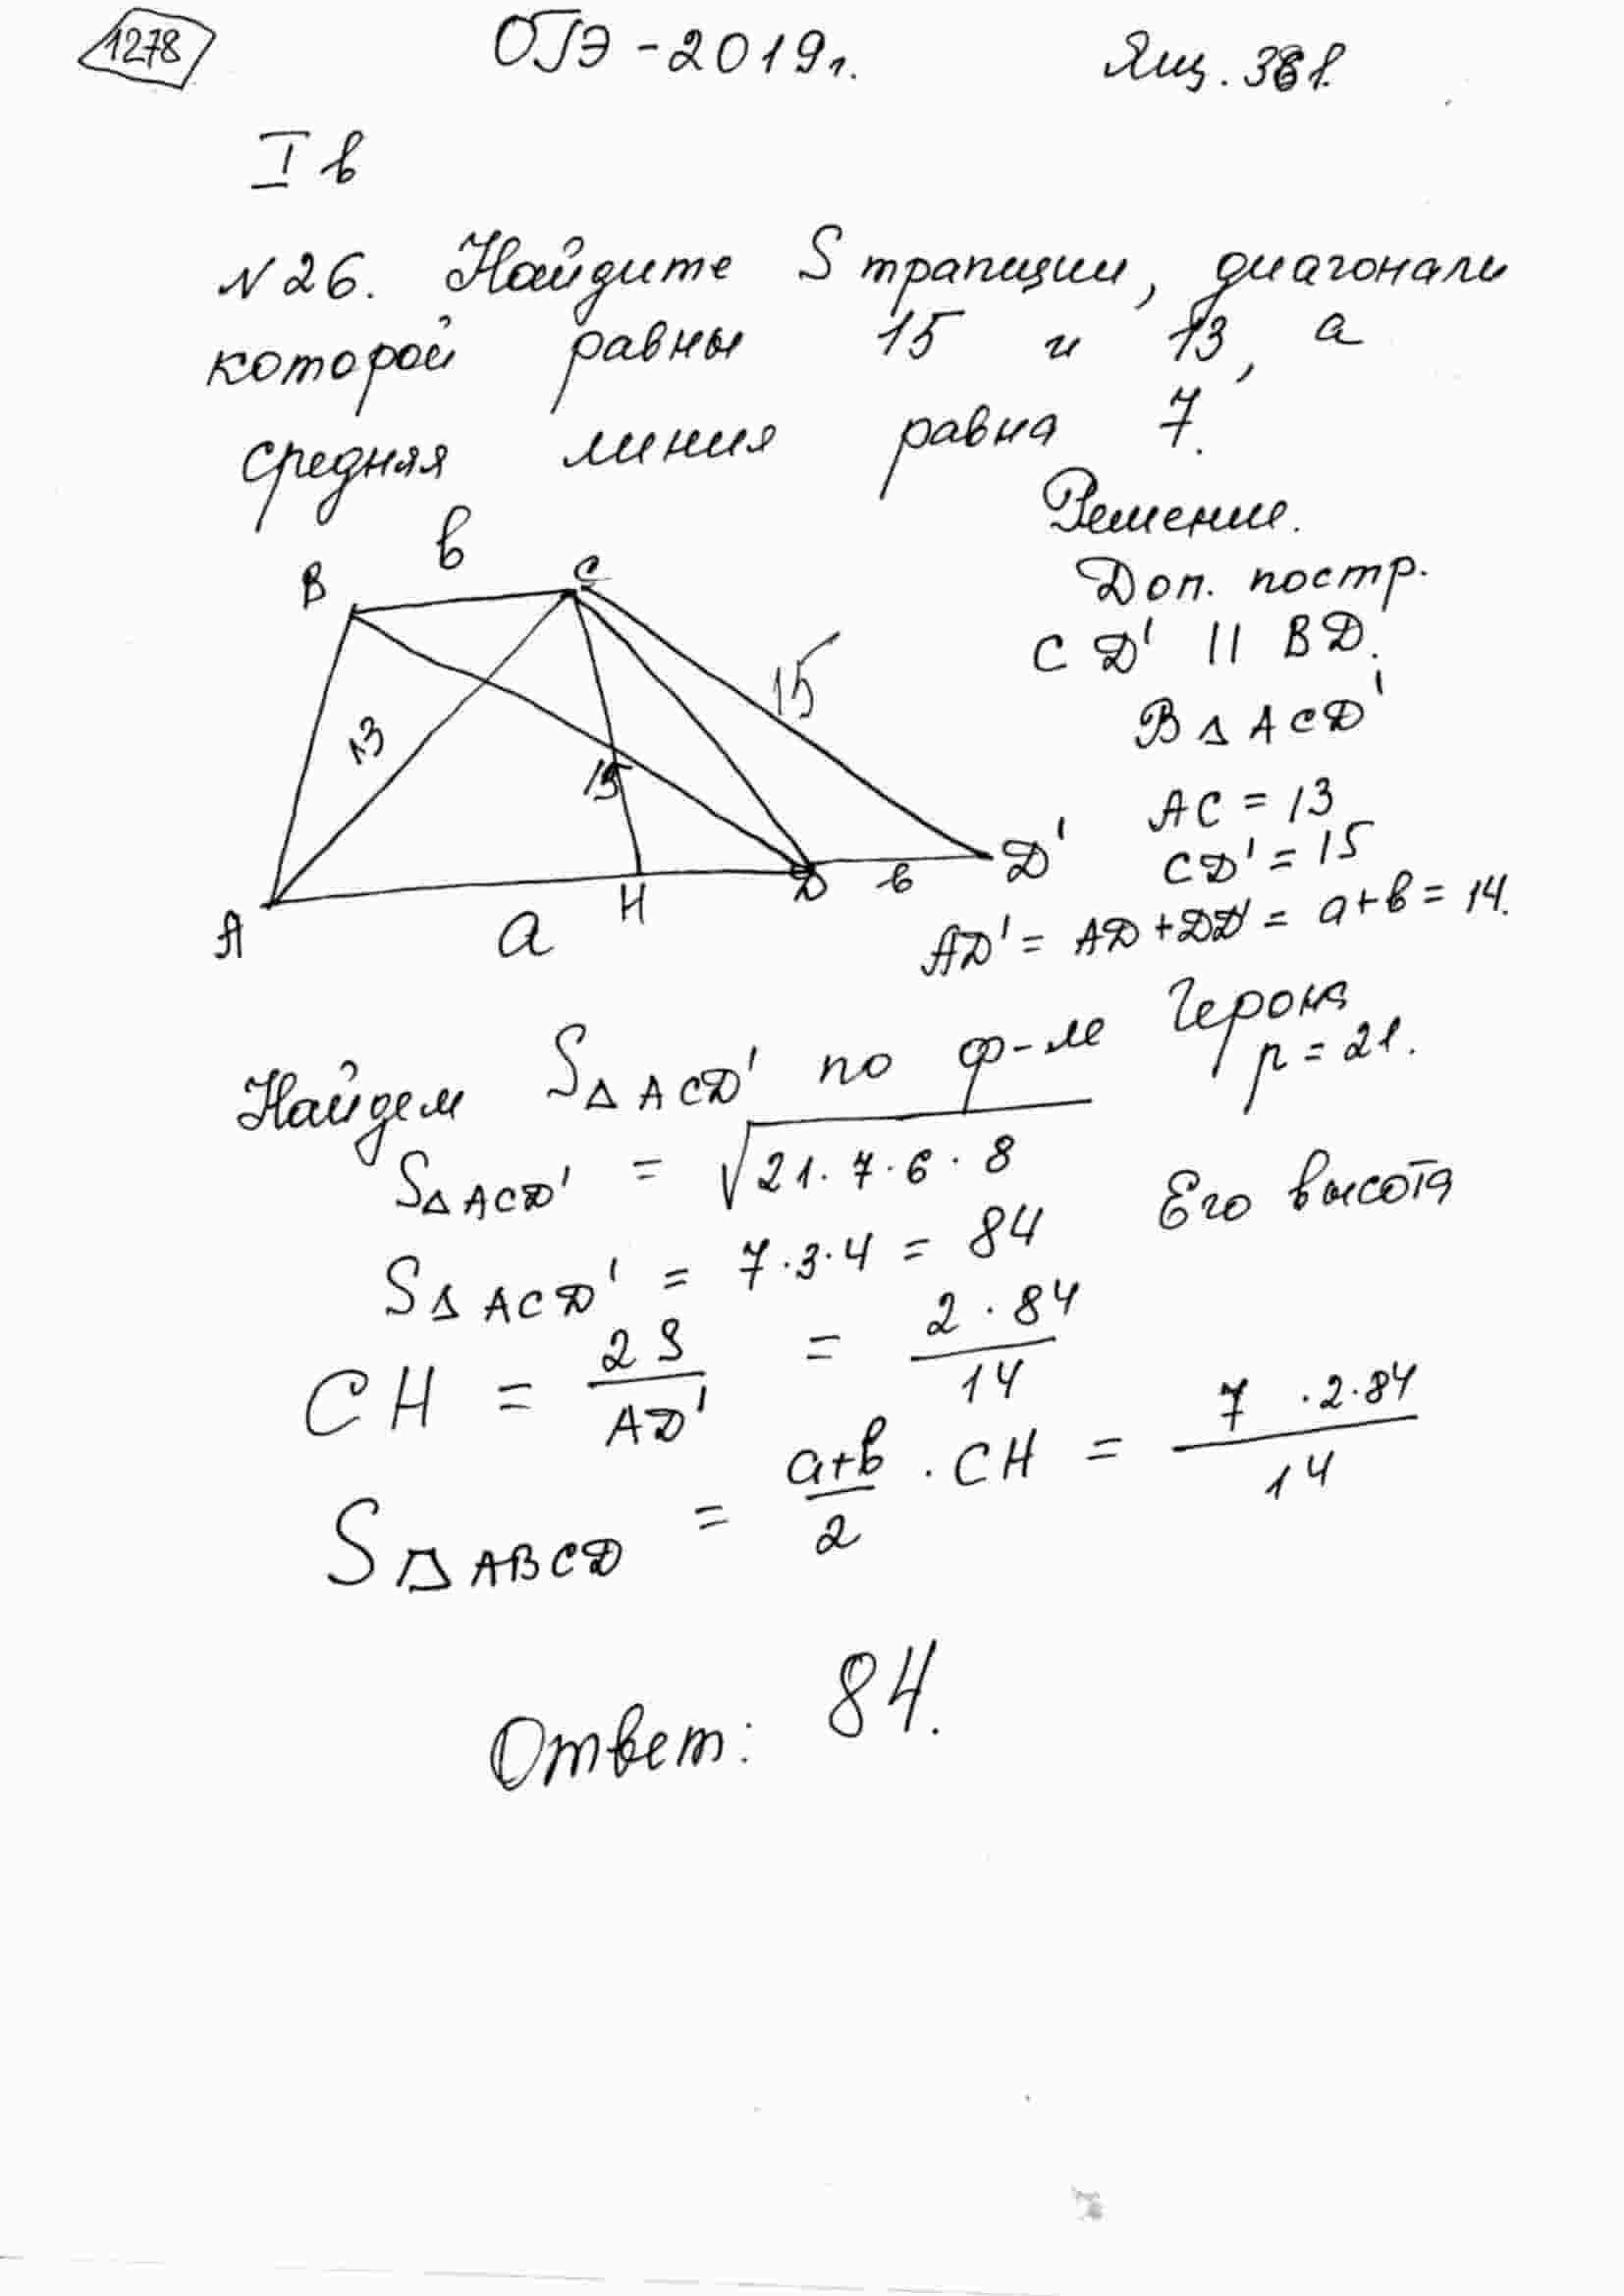 1278
ОГЭ - 2019г.
Ящ. 36 в.
I в
№26. Найдите S трапеции, диагонали
которой равны 15 и 13, а
средняя линия равна 7.
Решение.
Доп. постр.
CD' || BD.
В Δ ACD'
AC = 13
CD' = 15
AD' = AD + DD' = a+в = 14.
B
в
C
13
15
15
A
a
H
D
в
D'
Найдем SΔACD' по ф-ле Герона
p = 21.
SΔACD' = √21·7·6·8
SΔACD' = 7·3·4 = 84 Его высота
CH = 2S/AD' = 2·84/14
S ABCD = a+в/2 · CH = 7·2·84/14
Ответ: 84.